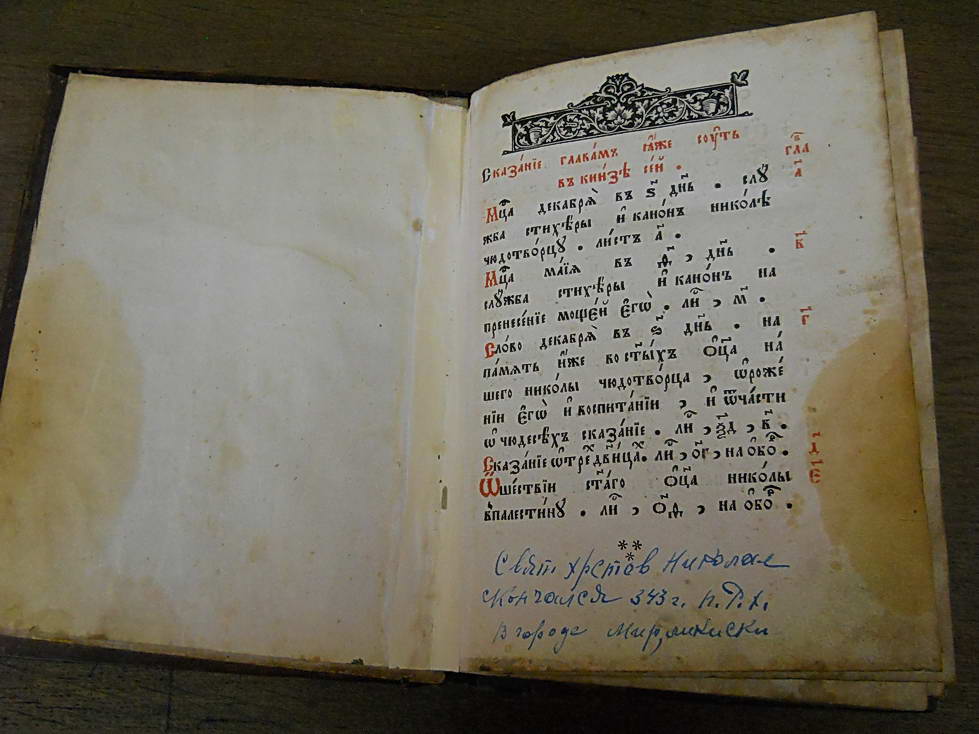 Сказа́нїе глава́мъ ꙗ҆́же сꙋ́ть
въ кни́зѣ се́й . гла в҃
Мц҃а декабрѧ̀ въ ѕ҃ дн҃ь . слꙋ́ а҃
жба стихѣ́ры и҆ кано́нъ нико́лѣ
чюдотво́рцꙋ . ли́стъ а҃ .
Мц҃а ма́їѧ въ д҃ , дн҃ь . в҃
слꙋ́жба стихѣ́ры и҆ кано́нъ на
пренесе́нїе моще́й є҆гѡ̀ . ли҃ , м҃ .
Сло́во декабрѧ̀ въ ѕ҃ дн҃ь . на г҃
па́мѧть и҆́же во ст҃ы́хъ ѻ҆ц҃а на́
шего нико́лы чюдотво́рца , ѡ҆роже́
нїи є҆гѡ̀ и҆ воспита́нїи , и҆ ѿча́сти
ѡ҆ чюдесѣ́хъ сказа́нїе . ли҃ , ѯ҃д , в҃ .
Сказа́нїе ѡ҆ тре́ дв҃и́ца . ли҃ , ѻ҃г , на ѻ҆бо́ . д҃
Ѿшествїи ст҃а́го ѻ҆ц҃а нико́лы є҃
впалести́нꙋ . ли҃ , ѻ҃д , на ѻ҆бо́ .
***
Свят. Христов Николае
скончался 343 г. п. Р. Х.
в городе Мирликиски